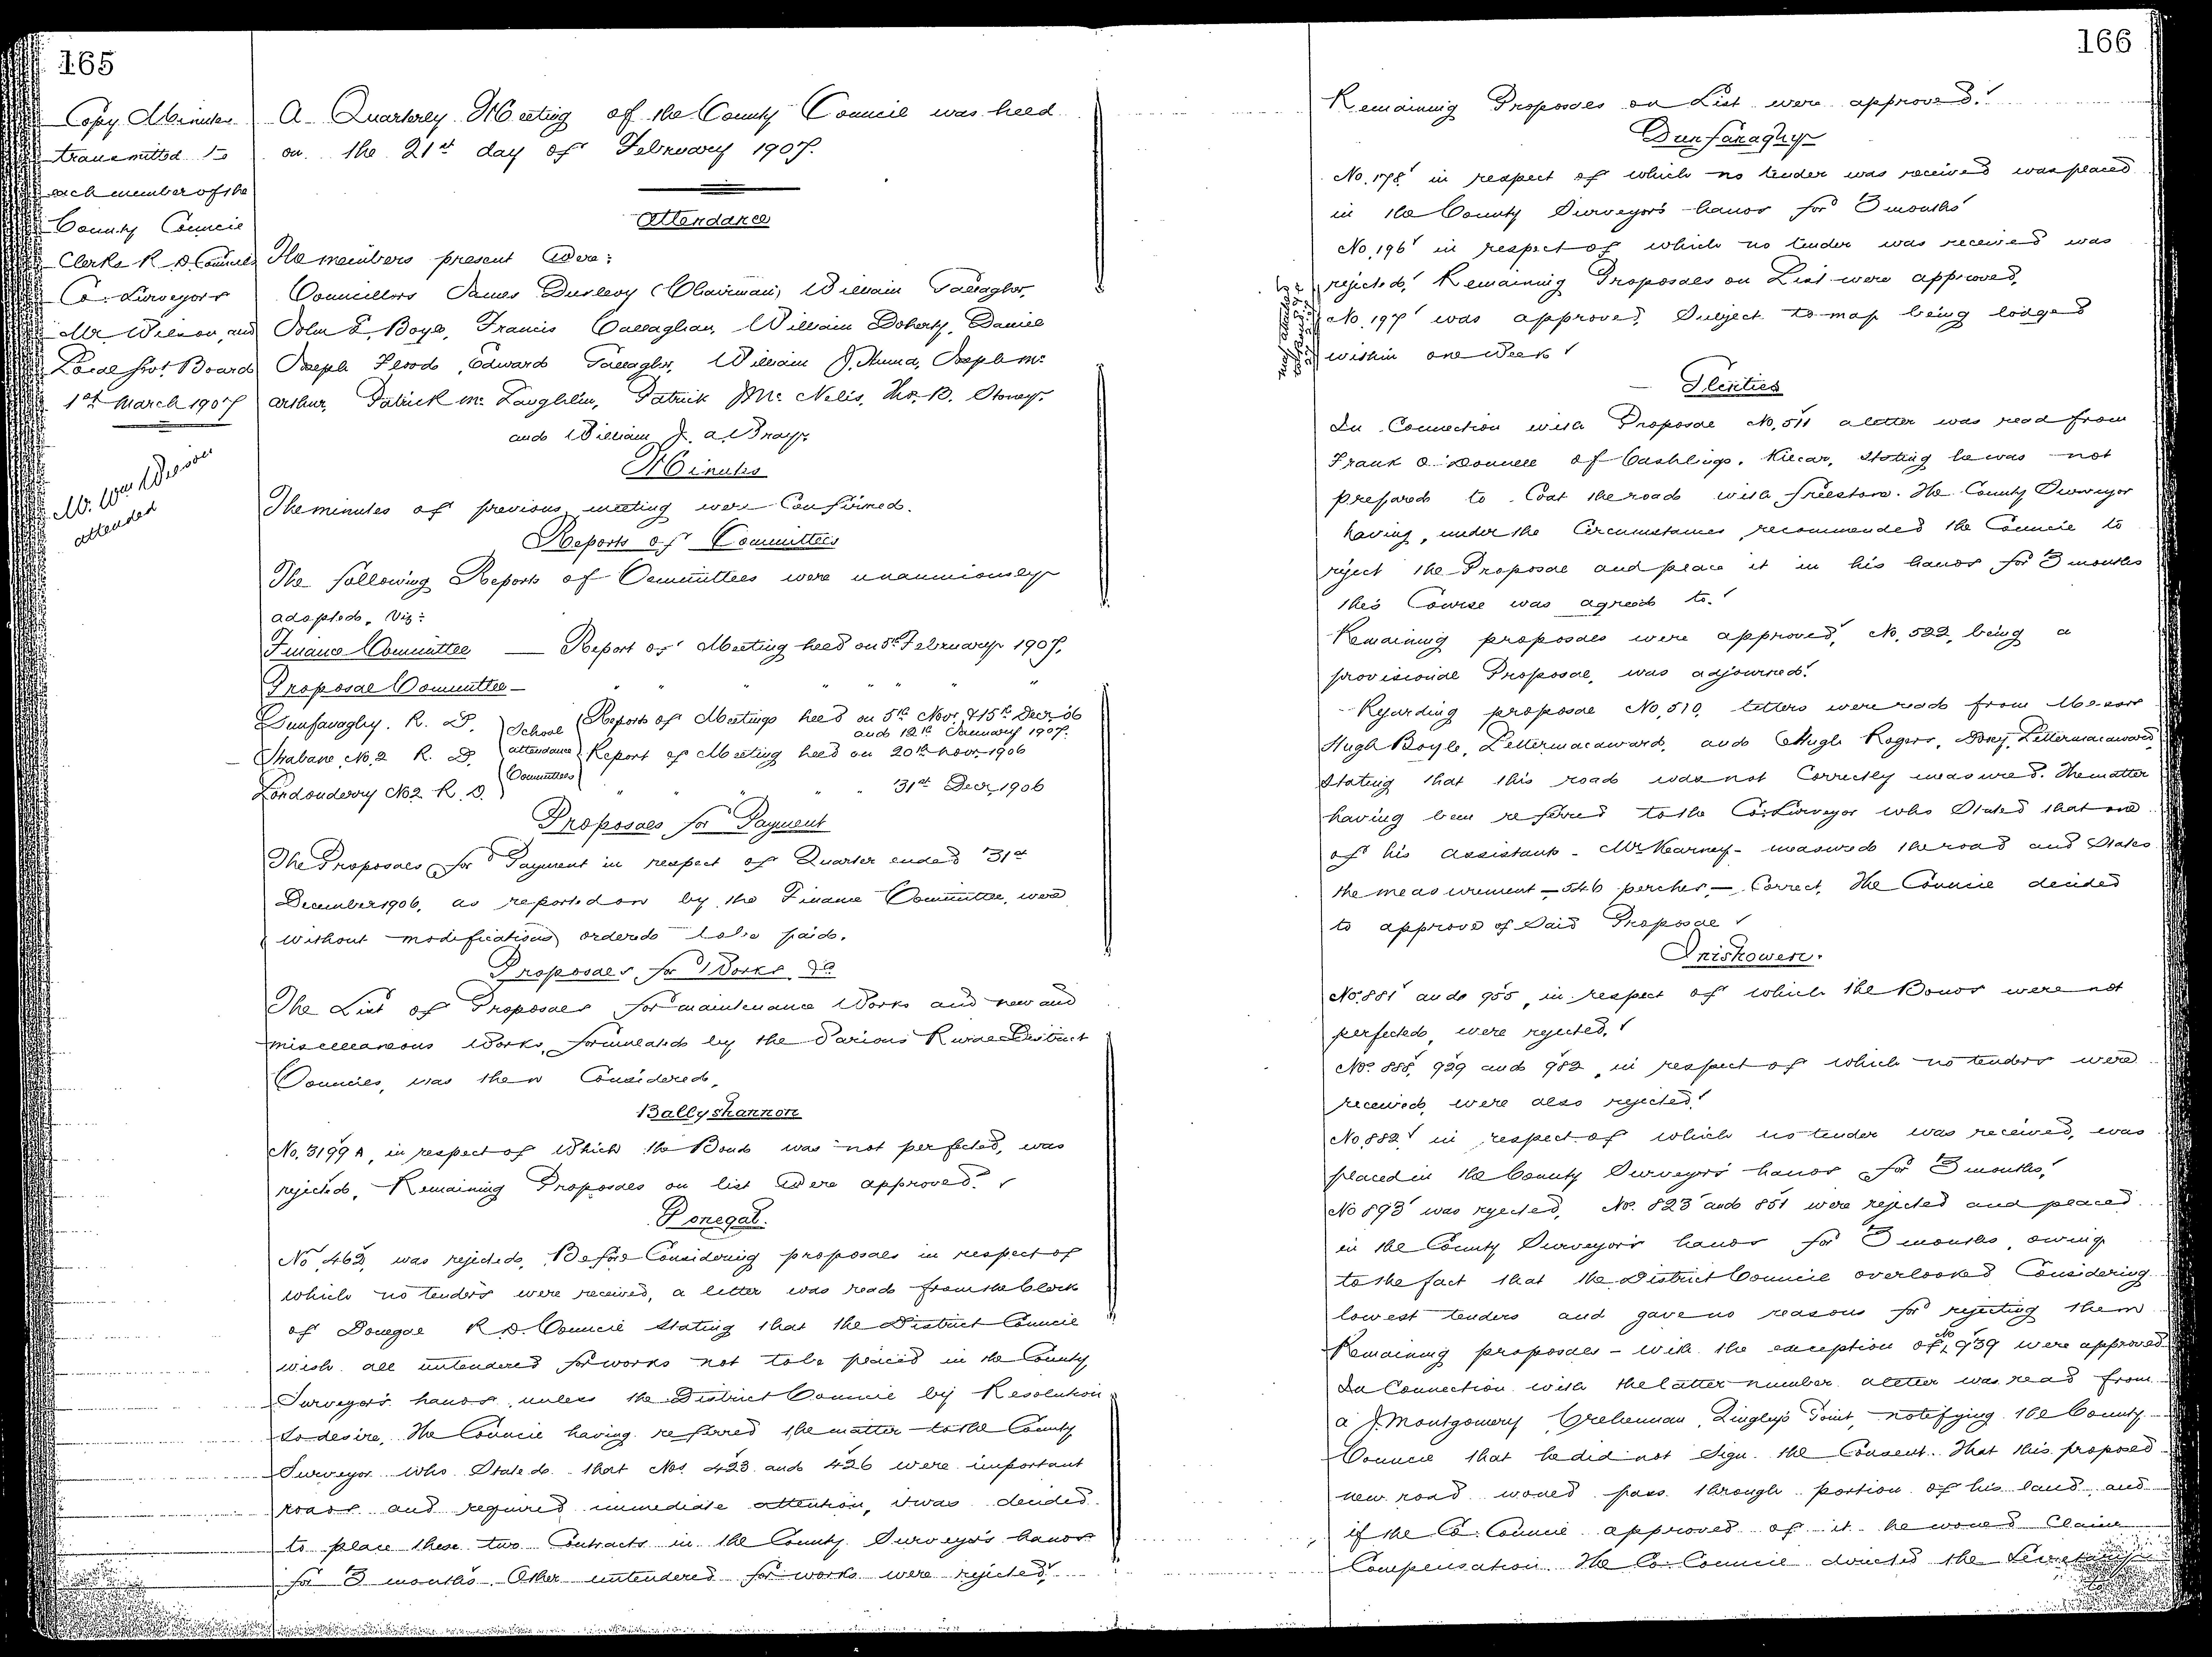 165
Copy Minutes
transmitted to
each member of the
County Council
Clerks R. D. Councils
Co. Surveyors
Mr Wilson, and
Local Govt. Board
1st March 1907
Mr. Wm Wilson
attended
A Quarterly Meeting of the County Council was held
on the 21st day of February 1907.
Attendance
The members present were:
Councillors James Dunlevy (Chairman) William Gallagher,
John F. Boyle, Francis Callaghan, William Doherty, Daniel
Joseph Flood, Edward Gallagher, William J. Hanna, Joseph Mc
Arthur, Patrick Mc Laughlin, Patrick J Mc Nelis, Thos. B. Stoney,
and William J. A. Wray.
Minutes
The minutes of previous meeting were Confirmed.
Reports of Committees
The following Reports of Committees were unanimously
adopted, Viz:
Finance Committee — Report of Meeting held on 5th February 1907.
Proposal Committee — " " " " " " "
Dunfanaghy. R. D. School Reports of Meetings held on 5th Novr. & 15th Decr. 06
and 12th January 1907.
Strabane, No. 2 R. D. attendance Report of Meeting held on 20th Novr. 1906
Committees
Londonderry No2 R. D. " " " " 31st Decr. 1906
Proposals for Payment
The Proposals for Payment in respect of Quarter ended 31st
December 1906, as reported on by the Finance Committee, were
without modifications ordered to be paid.
Proposals for Works &c
The List of Proposals for maintenance Works and new and
miscellaneous Works, formulated by the Various Rural District
Councils, was then Considered.
Ballyshannon
No. 3199 A, in respect of Which the Bond was not perfected, was
rejected. Remaining Proposals on list were approved.
Donegal.
No 462, was rejected. Before Considering proposals in respect of
which no tenders were received, a letter was read from the Clerk
of Donegal R. D. Council stating that the District Council
wish all untendered for works not to be placed in the County
Surveyor's hands, unless the District Council by Resolution
so desire. The Council having referred the matter to the County
Surveyor who Stated that Nos 423 and 426 were important
roads and required immediate attention, it was decided
to place these two Contracts in the County Surveyor's hands
for 3 months. Other untendered for works were rejected.
166
Remaining Proposals on List were approved.
Dunfanaghy
No. 178 in respect of which no tender was received was placed
in the County Surveyor's hands for 3 months
No. 196 in respect of which no tender was received was
rejected. Remaining Proposals on List were approved,
No. 197 was approved, Subject to map being lodged
within one Week
Glenties
In Connection with Proposal No. 511 a letter was read from
Frank O'Donnell of Cashlings, Kilcar, Stating he was not
prepared to Coat the road with freestone. The County Surveyor
having, under the Circumstances recommended the Council to
reject the Proposal and place it in his hands for 3 months
this Course was agreed to.
Remaining proposals were approved, No. 522, being a
provisional Proposal, was adjourned.
Regarding proposal No. 510, letters were read from Messrs
Hugh Boyle, Lettermacaward, and Hugh Rogers, Dony, Lettermacaward,
Stating that this road was not Correctly measured. The matter
having been referred to the Co. Surveyor who Stated that one
of his Assistants - Mr Kearney - measured the road and States
the measurement - 546 perches, - Correct. The Council decided
to approve of Said Proposal
Inishowen.
Nos. 881 and 955, in respect of which the Bonds were not
perfected, were rejected.
Nos. 888, 929 and 982, in respect of which no tenders were
received, were also rejected.
No. 882 in respect of which no tender was received, was
placed in the County Surveyor's hands for 3 months.
No 893 was rejected, Nos. 823 and 851 were rejected and placed
in the County Surveyor's hands for 3 months, owing
to the fact that the District Council overlooked Considering
lowest tenders and gave no reasons for rejecting them
Remaining proposals - with the exception of No 939 were approved
In Connection with the latter number a letter was read from
a J. Montgomery Crehennan, Quigley's Point, notifying the County
Council that he did not Sign the Consent. That this proposed
new road would pass through portion of his land and
if the Co. Council approved of it he would Claim
Compensation. The Co. Council directed the Secretary
to